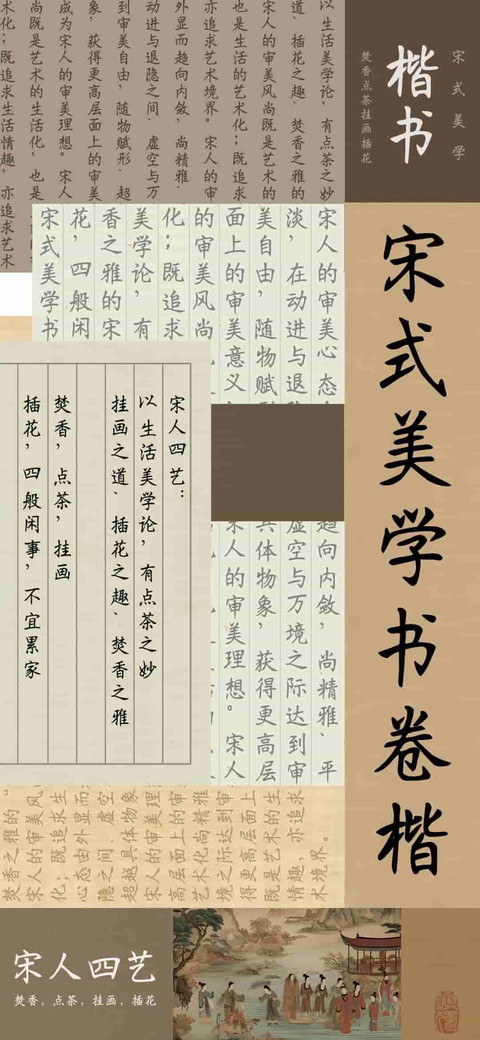 楷书
宋式美学
焚香点茶挂画插花
宋式美学书卷楷
以生活美学论，有点茶之妙
道、插花之趣、焚香之雅的
宋人的审美风尚既是艺术的
也是生活的艺术化；既追求
亦追求艺术境界。宋人的审
外显而趋向内敛，尚精雅、
动进与退隐之间、虚空与万
到审美自由，随物赋形、超
象，获得更高层面上的审美
成为宋人的审美理想。宋人
尚既是艺术的生活化，也是
术化；既追求生活情趣，亦追求艺术
宋人的审美心态
淡，在动进与退
美自由，随物赋
面上的审美意义
的审美风尚
化；既追求
美学论，有
香之雅的宋
花，四般闲
宋式美学书
趋向内敛，尚精雅、平
虚空与万境之际达到审
具体物象，获得更高层
宋人的审美理想。宋人
宋人四艺：
以生活美学论，有点茶之妙
挂画之道、插花之趣、焚香之雅
焚香，点茶，挂画
插花，四般闲事，不宜累家
焚香之雅的“
宋人的审美风
化；既追求生
心态由外显而
隐之间、虚空
超越具体物象
宋人的审美理
高层面上的审
艺术化尚精雅
境之际达到审
得更高层面上
既是艺术的生
情趣，亦追求
术境界。
宋人四艺
焚香、点茶，挂画，插花